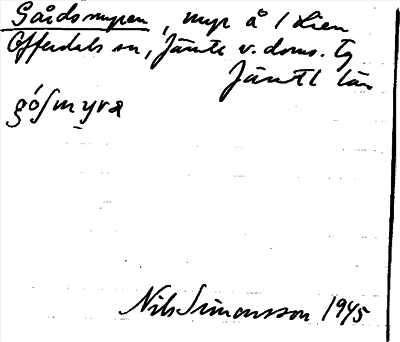 Gårdsmyren, myr å 1 Lien
Offerdals sn, Jämts v. doms. tg
Jämtl län
gó∫myra
Nils Simonsson 1945